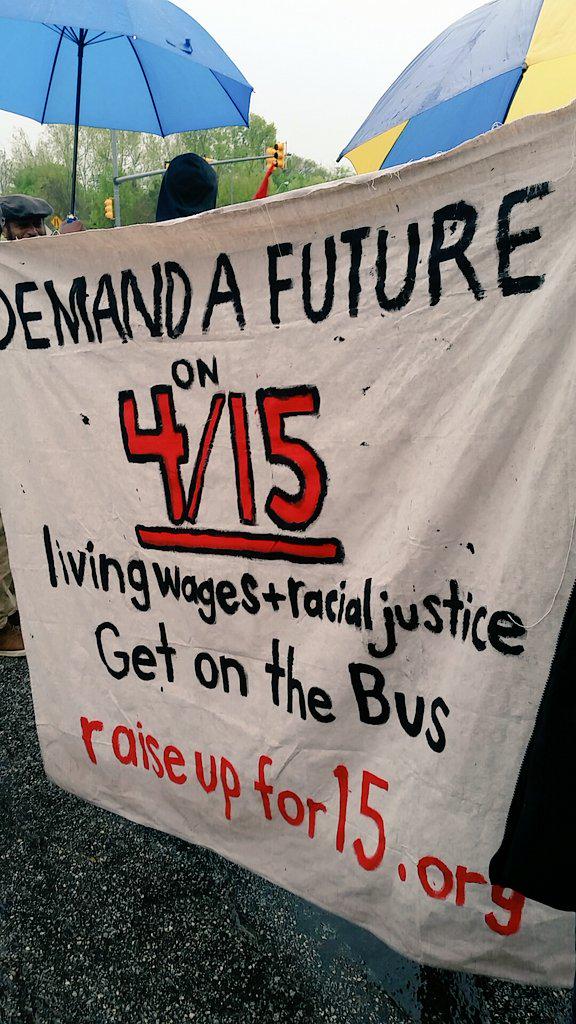 DEMAND A FUTURE
ON
4/15
living wages+racial justice
Get on the Bus
raise up for 15.org